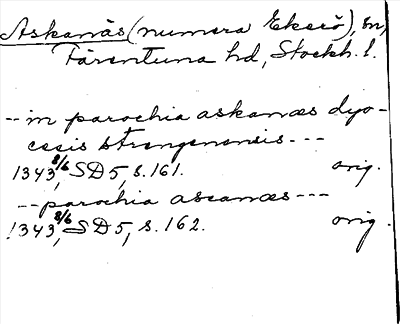 Askanäs (numera Ekerö), sn,
Färentuna hd, Stockh. l.
-- in parochia askanæs dyo-
cesis strengenensis ---
1343 8/6, SD 5, s. 161. orig.
-- parochia ascanæs ---
1343 8/6, SD 5, s. 162. orig.